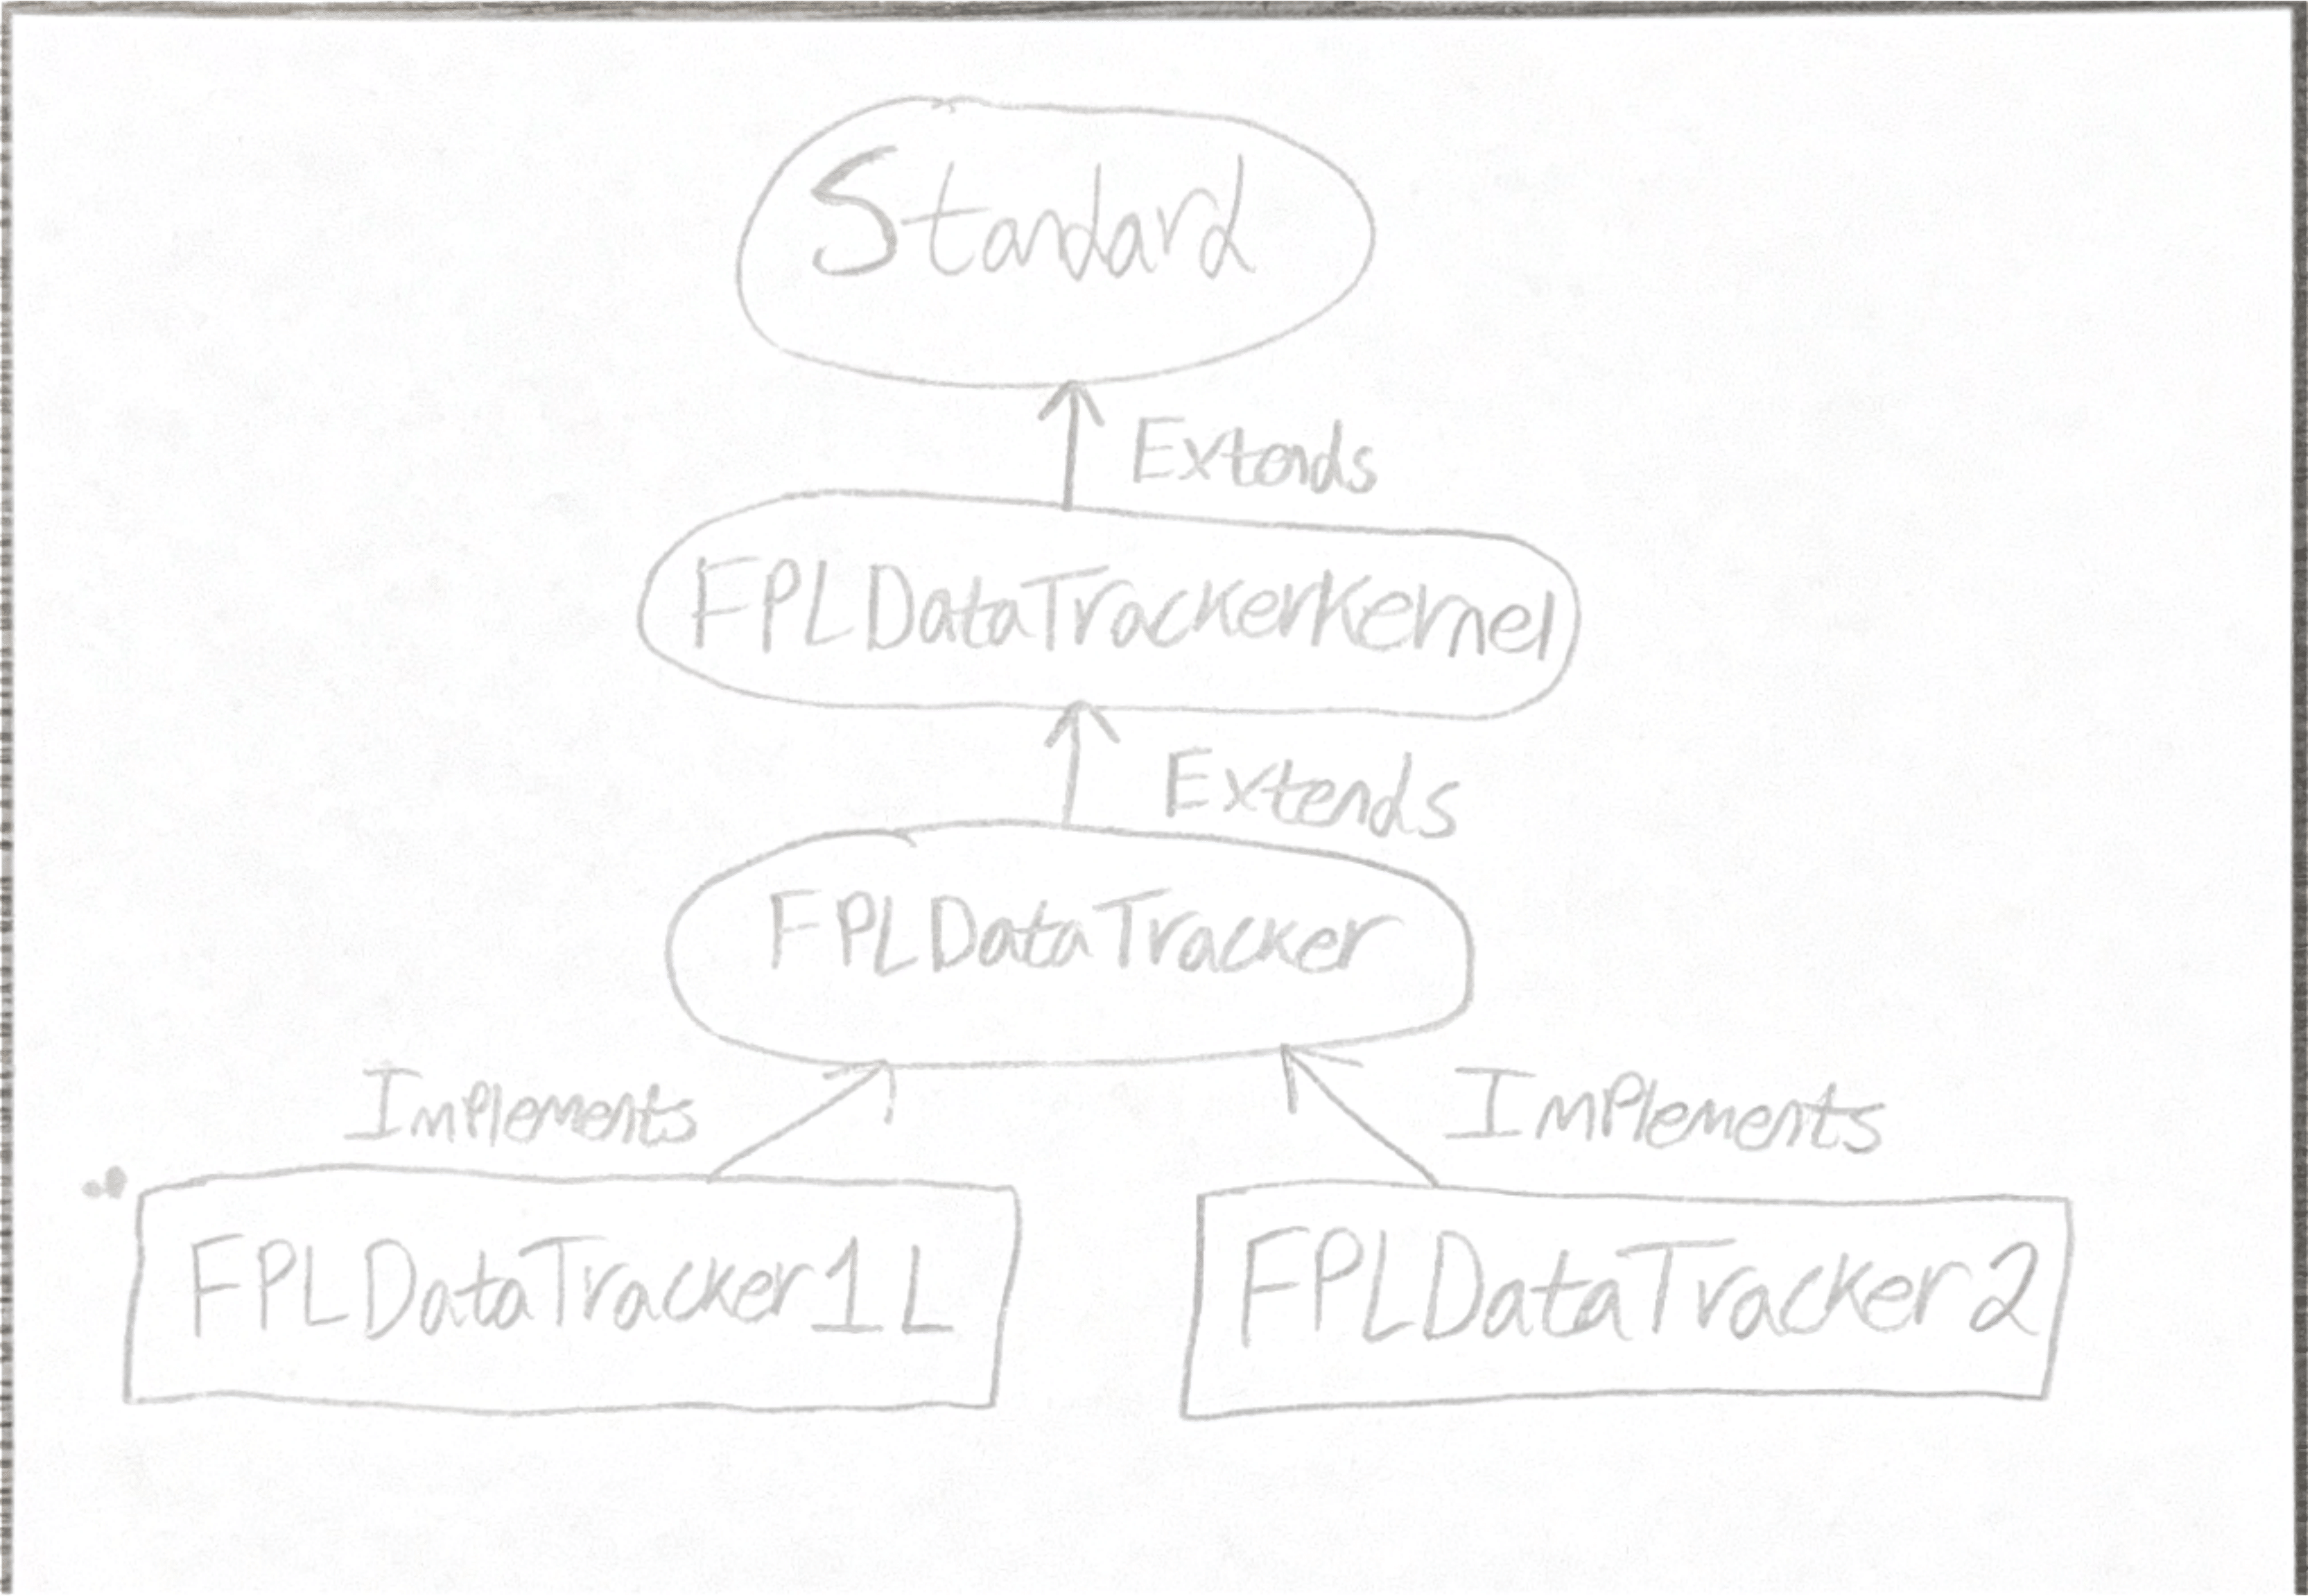 Standard
Extends
FPLDataTrackerKernel
Extends
FPLDataTracker
Implements
Implements
FPLDataTracker1L
FPLDataTracker2